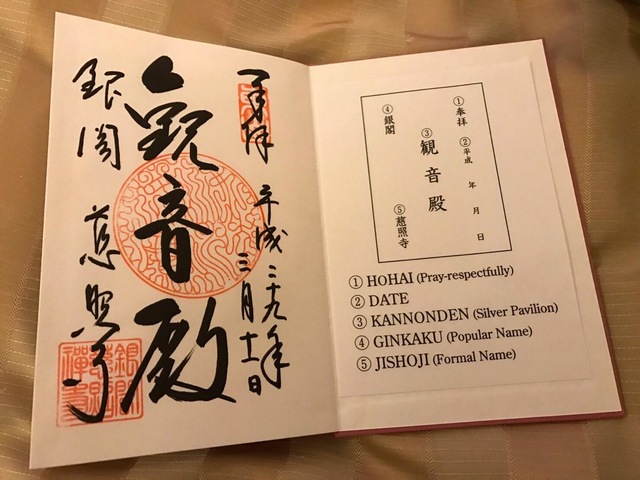 奉拝
平成二十九年
三月十一日
觀音殿
銀閣 慈照寺
①奉拝
②平成 年 月 日
③観音殿
④銀閣
⑤慈照寺
① HOHAI (Pray-respectfully)
② DATE
③ KANNONDEN (Silver Pavilion)
④ GINKAKU (Popular Name)
⑤ JISHOJI (Formal Name)